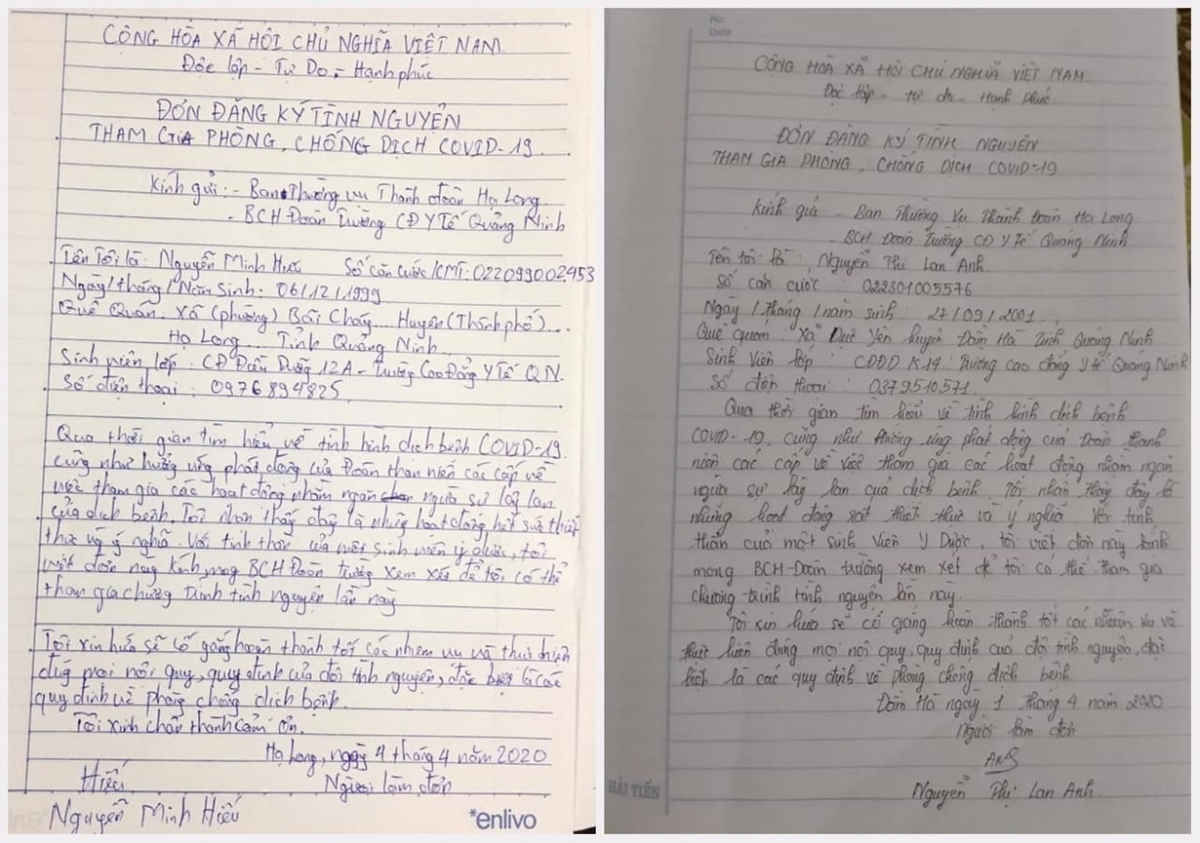 CỘNG HÒA XÃ HỘI CHỦ NGHĨA VIỆT NAM
Độc lập - Tự Do - Hạnh phúc
ĐƠN ĐĂNG KÝ TÌNH NGUYỆN
THAM GIA PHÒNG, CHỐNG DỊCH COVID-19
Kính gửi: - Ban Thường vụ Thành đoàn Hạ Long
- BCH Đoàn Trường CĐ Y Tế Quảng Ninh
Tên Tôi là: Nguyễn Minh Hiếu Số căn cước/CMT: 022099002453
Ngày/tháng/Năm Sinh: 06/12/1999
Quê Quán: Xã (phường) Bãi Cháy... Huyện (Thành phố)...
Hạ Long... Tỉnh Quảng Ninh
Sinh viên lớp: CĐ Điều Dưỡng 12A - Trường Cao Đẳng Y Tế QN.
Số điện thoại: 0976894825
Qua thời gian tìm hiểu về tình hình dịch bệnh COVID-19.
cũng như hưởng ứng phát động của Đoàn than niên các cấp về
việc tham gia các hoạt động nhằm ngăn ngừa sự lây lan
của dịch bệnh. Tôi nhận thấy đây là những hoạt động hết sức thiết
thực và ý nghĩa. Với tinh thần của một sinh viên y dược, tôi
viết đơn này kính mong BCH Đoàn trường xem xét để tôi có thể
tham gia chương trình tình nguyện lần này
Tôi xin hứa sẽ cố gắng hoàn thành tốt các nhiệm vụ và thực hiện
đúng mọi nội quy, quy định của đội tình nguyện, đặc biệt là các
quy định về phòng chống dịch bệnh.
Tôi xinh chân thành cảm ơn.
Hạ Long, ngày 4 tháng 4 năm 2020
Hiếu Người làm đơn
Nguyễn Minh Hiếu
*enlivo
No:
Date:
CỘNG HOÀ XÃ HỘI CHỦ NGHĨA VIỆT NAM
Độc lập - tự do - Hạnh phúc
ĐƠN ĐĂNG KÝ TÌNH NGUYỆN
THAM GIA PHÒNG, CHỐNG DỊCH COVID-19
Kính gửi - Ban Thường Vụ Thành Đoàn Hạ Long
- BCH Đoàn Trường CĐ Y Tế Quảng Ninh
Tên tôi là: Nguyễn Thị Lan Anh
Số căn cước: 022301005576
Ngày/tháng/năm sinh: 27/09/2001
Quê quán: Xã Dực Yên huyện Đầm Hà Tỉnh Quảng Ninh
Sinh Viên lớp: CĐDD K14. Trường cao đẳng y tế Quảng Ninh
Số điện thoại: 0379510571
Qua thời gian tìm hiểu về tình hình dịch bệnh
COVID-19. cũng như hưởng ứng phát động của Đoàn thanh
niên các cấp về việc tham gia các hoạt động nhằm ngăn
ngừa sự lây lan của dịch bệnh. Tôi nhận thấy đây là
những hoạt động rất thiết thực và ý nghĩa. Với tinh
thần của một sinh Viên Y Dược, tôi viết đơn này kính
mong BCH-Đoàn trường xem xét để tôi có thể tham gia
chương trình tình nguyện lần này.
Tôi xin hứa sẽ cố gắng hoàn thành tốt các nhiệm vụ và
thực hiện đúng mọi nội quy, quy định của đội tình nguyện, đặt
biệt là các quy định về phòng chống dịch bệnh
Đầm Hà ngày 1 tháng 4 năm 2020
Người làm đơn
Anh
Nguyễn Thị Lan Anh
HẢI TIẾN